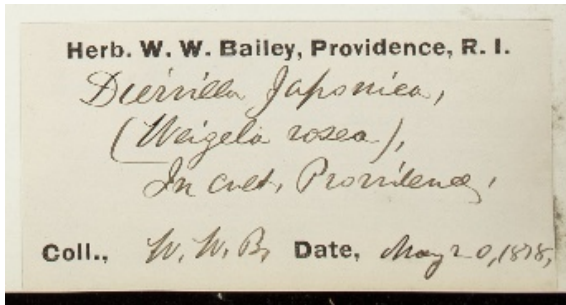 Herb. W. W. Bailey, Providence, R. I.
Diervilla Japonica,
(Weigela rosea),
In cult, Providence,
Coll., W. W. B, Date, May 20, 1878,